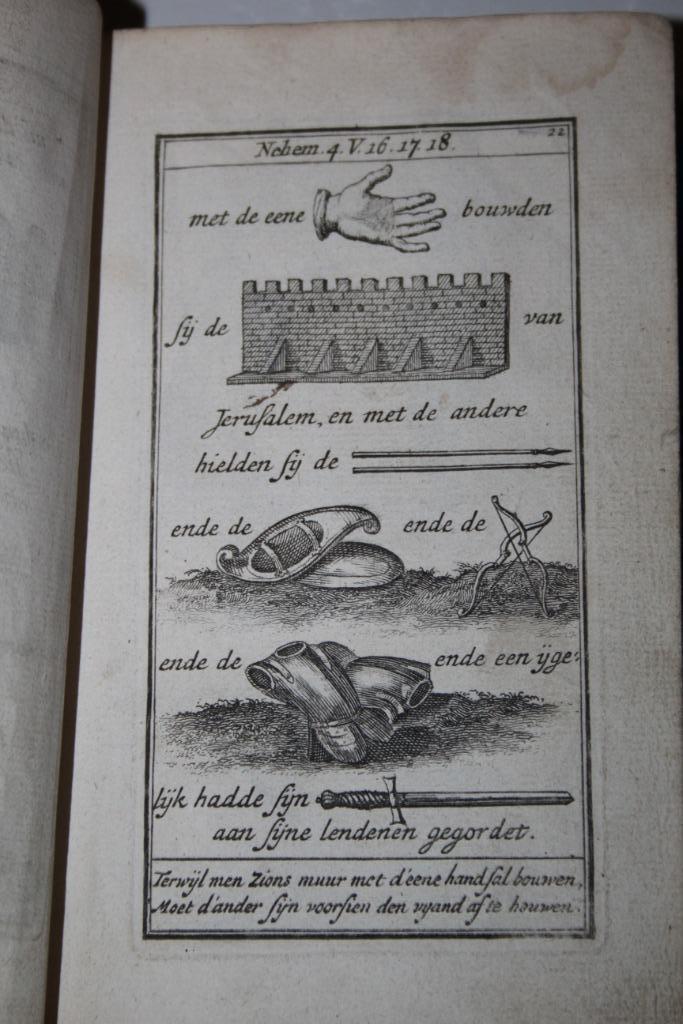 22
Nehem. 4. V. 16. 17. 18.
met de eene bouwden
sij de van
Jerusalem, en met de andere
hielden sij de
ende de ende de
ende de ende een ijge:
lijk hadde sijn
aan sijne lendenen gegordet.
Terwijl men Zions muur met d'eene hand sal bouwen,
Moet d'ander sijn voorsien den vyand af te houwen.